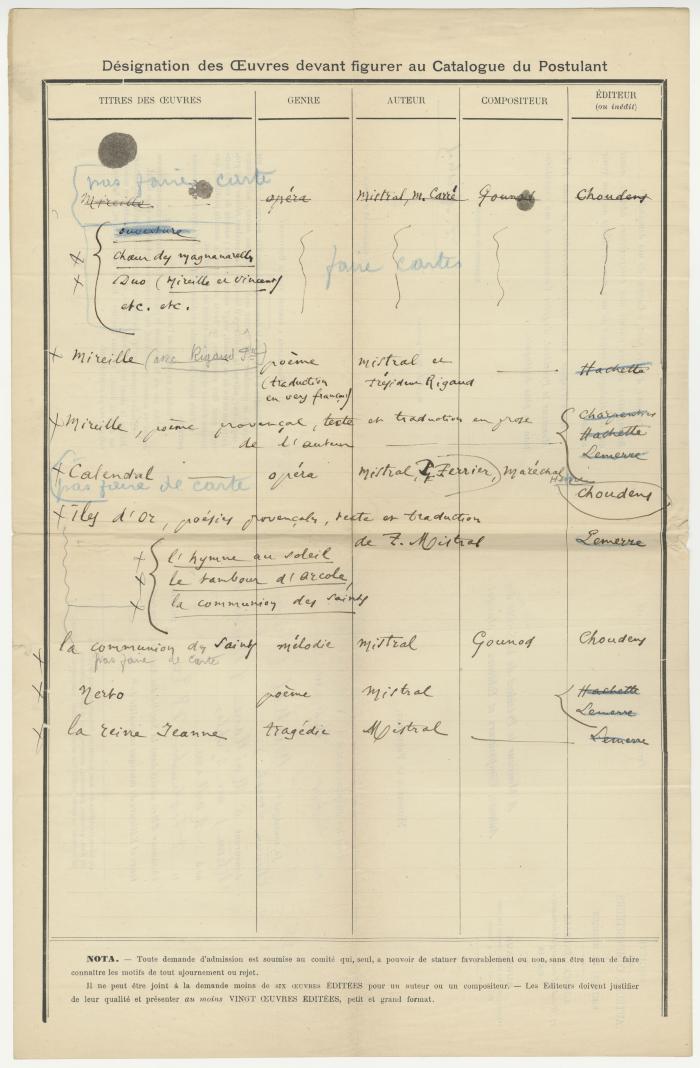 Désignation des Œuvres devant figurer au Catalogue du Postulant
TITRES DES ŒUVRES GENRE AUTEUR COMPOSITEUR ÉDITEUR
(ou inédit)
pas faire carte
Mireille opéra Mistral, M. Carré Gounod Choudens
ouverture
Chœur des magnanarelles
Duo (Mireille et Vincent)
etc. etc.
faire cartes
Mireille (avec Rigaud) poème Mistral et
(traduction président Rigaud Hachette
en vers français)
Mireille, poème provençal, texte et traduction en prose Charpentier
de l'auteur Hachette
Lemerre
Calendal opéra Mistral, P. Ferrier, Maréchal
Henri
pas faire de carte Choudens
Îles d'Or, poésies provençales, texte et traduction
de F. Mistral Lemerre
l'hymne au soleil
le tambour d'Arcole
la communion des Saints
la communion des Saints mélodie Mistral Gounod Choudens
pas faire de carte
Nerto poème Mistral Hachette
Lemerre
la reine Jeanne tragédie Mistral Lemerre
NOTA. — Toute demande d'admission est soumise au comité qui, seul, a pouvoir de statuer favorablement ou non, sans être tenu de faire
connaître les motifs de tout ajournement ou rejet.
Il ne peut être joint à la demande moins de SIX ŒUVRES ÉDITÉES pour un auteur ou un compositeur. — Les Editeurs doivent justifier
de leur qualité et présenter au moins VINGT ŒUVRES EDITÉES, petit et grand format.